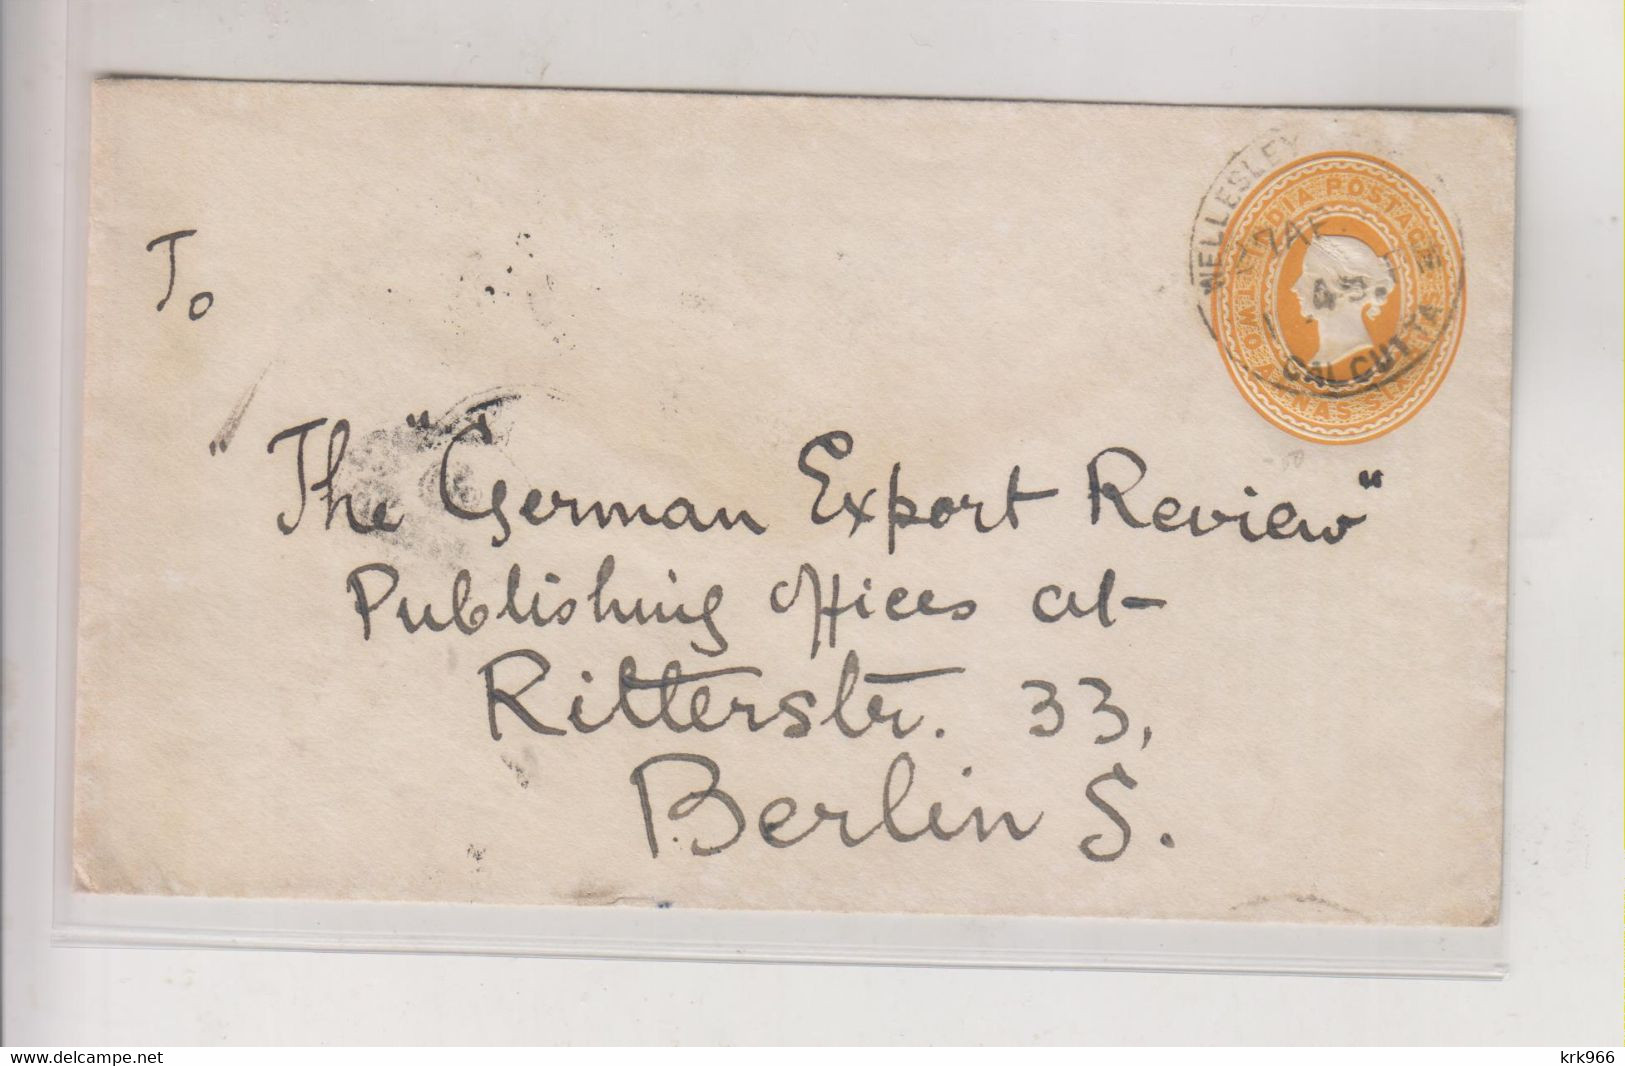 To
"The "German Export Review"
Publishing Offices at
Ritterstr. 33,
Berlin S.
INDIA POSTAGE
TWO ANNAS SIX
WELLESLEY
CALCUTTA
www.delcampe.net
krk966